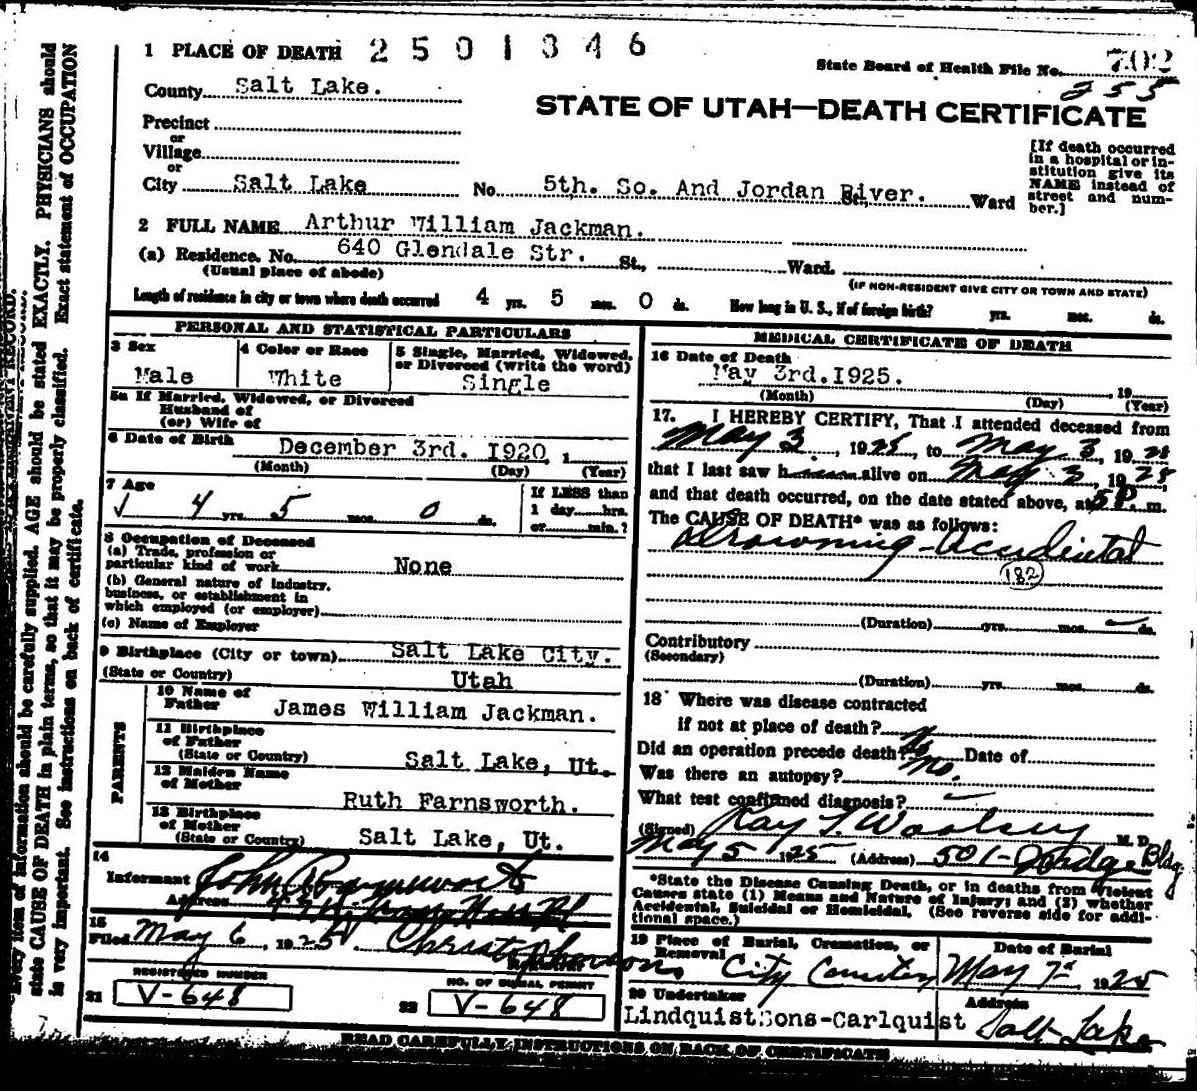 1 PLACE OF DEATH 2501346
State Board of Health File No. 702
255
County Salt Lake.
STATE OF UTAH—DEATH CERTIFICATE
Precinct
or
Village
or
City Salt Lake No. 5th. So. And Jordan River. St., Ward
[If death occurred in a hospital or institution give its NAME instead of street and number.]
2 FULL NAME Arthur William Jackman.
(a) Residence. No. 640 Glendale Str. St., Ward.
(Usual place of abode)
(IF NON-RESIDENT GIVE CITY OR TOWN AND STATE)
Length of residence in city or town where death occurred 4 yrs. 5 mos. 0 ds. How long in U. S., if of foreign birth? yrs. mos. ds.
PERSONAL AND STATISTICAL PARTICULARS
3 Sex
Male
4 Color or Race
White
5 Single, Married, Widowed, or Divorced (write the word)
Single
5a If Married, Widowed, or Divorced
Husband of
(or) Wife of
6 Date of Birth December 3rd. 1920, 1
(Month) (Day) (Year)
7 Age
4 yrs. 5 mos. 0 ds.
If LESS than
1 day hrs.
or min.?
8 Occupation of Deceased
(a) Trade, profession or
particular kind of work None
(b) General nature of industry,
business, or establishment in
which employed (or employer)
(c) Name of Employer
9 Birthplace (City or town) Salt Lake City.
(State or Country) Utah
PARENTS
10 Name of
Father James William Jackman.
11 Birthplace
of Father
(State or Country) Salt Lake, Ut.
12 Maiden Name
of Mother Ruth Farnsworth.
13 Birthplace
of Mother
(State or Country) Salt Lake, Ut.
14
Informant John Farnsworth
Address
15
Filed May 6, 1925
Registrar
REGISTERED NUMBER
21 V-648
NO. OF BURIAL PERMIT
22 V-648
MEDICAL CERTIFICATE OF DEATH
16 Date of Death
May 3rd. 1925. , 19
(Month) (Day) (Year)
17. I HEREBY CERTIFY, That I attended deceased from
May 3, 1925, to May 3, 1925
that I last saw h alive on May 3, 1925,
and that death occurred, on the date stated above, at 5 P. m.
The CAUSE OF DEATH* was as follows:
Drowning - Accidental
182
(Duration) yrs. mos. ds.
Contributory
(Secondary)
(Duration) yrs. mos. ds.
18 Where was disease contracted
if not at place of death?
Did an operation precede death? No Date of
Was there an autopsy? No.
What test confirmed diagnosis?
(Signed) Ray T. Woolsey M. D.
May 5 1925 (Address) 501-Judge Bldg
*State the Disease Causing Death, or in deaths from Violent
Causes state (1) Means and Nature of Injury; and (2) whether
Accidental, Suicidal or Homicidal. (See reverse side for additional space.)
19 Place of Burial, Cremation, or
Removal City Cemetery
Date of Burial
May 7th, 1925
20 Undertaker
Lindquist Sons-Carlquist
Address
Salt Lake
READ CAREFULLY INSTRUCTIONS ON BACK OF CERTIFICATE
Every item of information should be carefully supplied. AGE should be stated EXACTLY. PHYSICIANS should
state CAUSE OF DEATH in plain terms, so that it may be properly classified. Exact statement of OCCUPATION
is very important. See instructions on back of certificate.